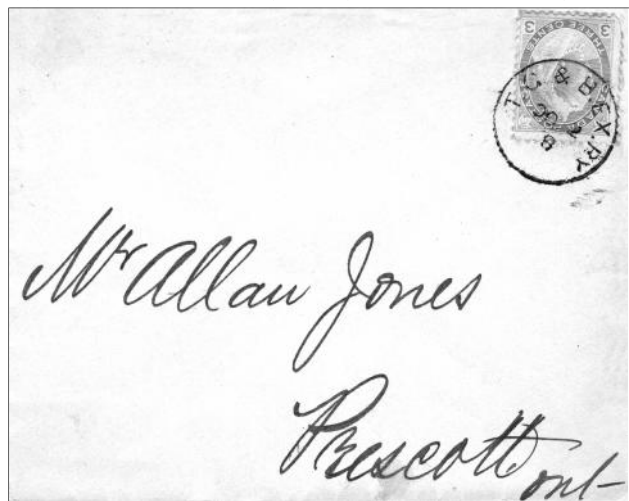 THREE CENTS
3 3
Mr Allan Jones
Prescott
ont-